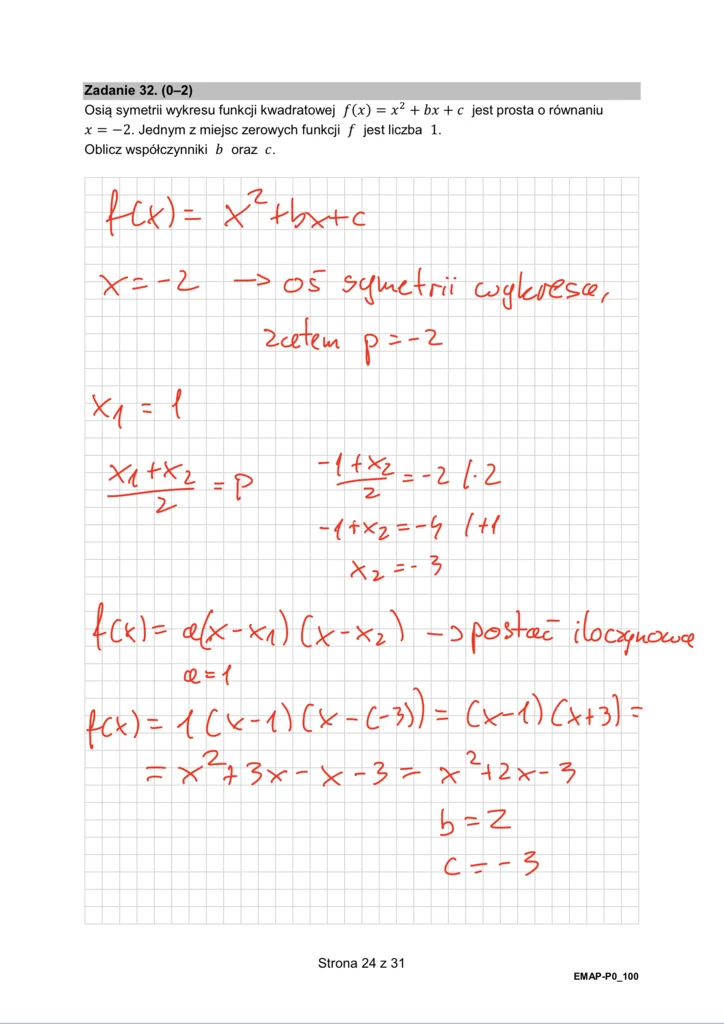 Zadanie 32. (0–2)
Osią symetrii wykresu funkcji kwadratowej f(x) = x² + bx + c jest prosta o równaniu
x = −2. Jednym z miejsc zerowych funkcji f jest liczba 1.
Oblicz współczynniki b oraz c.
f(x) = x²+bx+c
x = -2 → oś symetrii wykresu,
zatem p = -2
x₁ = 1
(x₁+x₂)/2 = p (-1+x₂)/2 = -2 /·2
-1+x₂ = -4 /+1
x₂ = -3
f(x) = a(x-x₁)(x-x₂) → postać iloczynowa
a = 1
f(x) = 1(x-1)(x-(-3)) = (x-1)(x+3) =
= x²+3x-x-3 = x²+2x-3
b = 2
c = -3
Strona 24 z 31
EMAP-P0_100